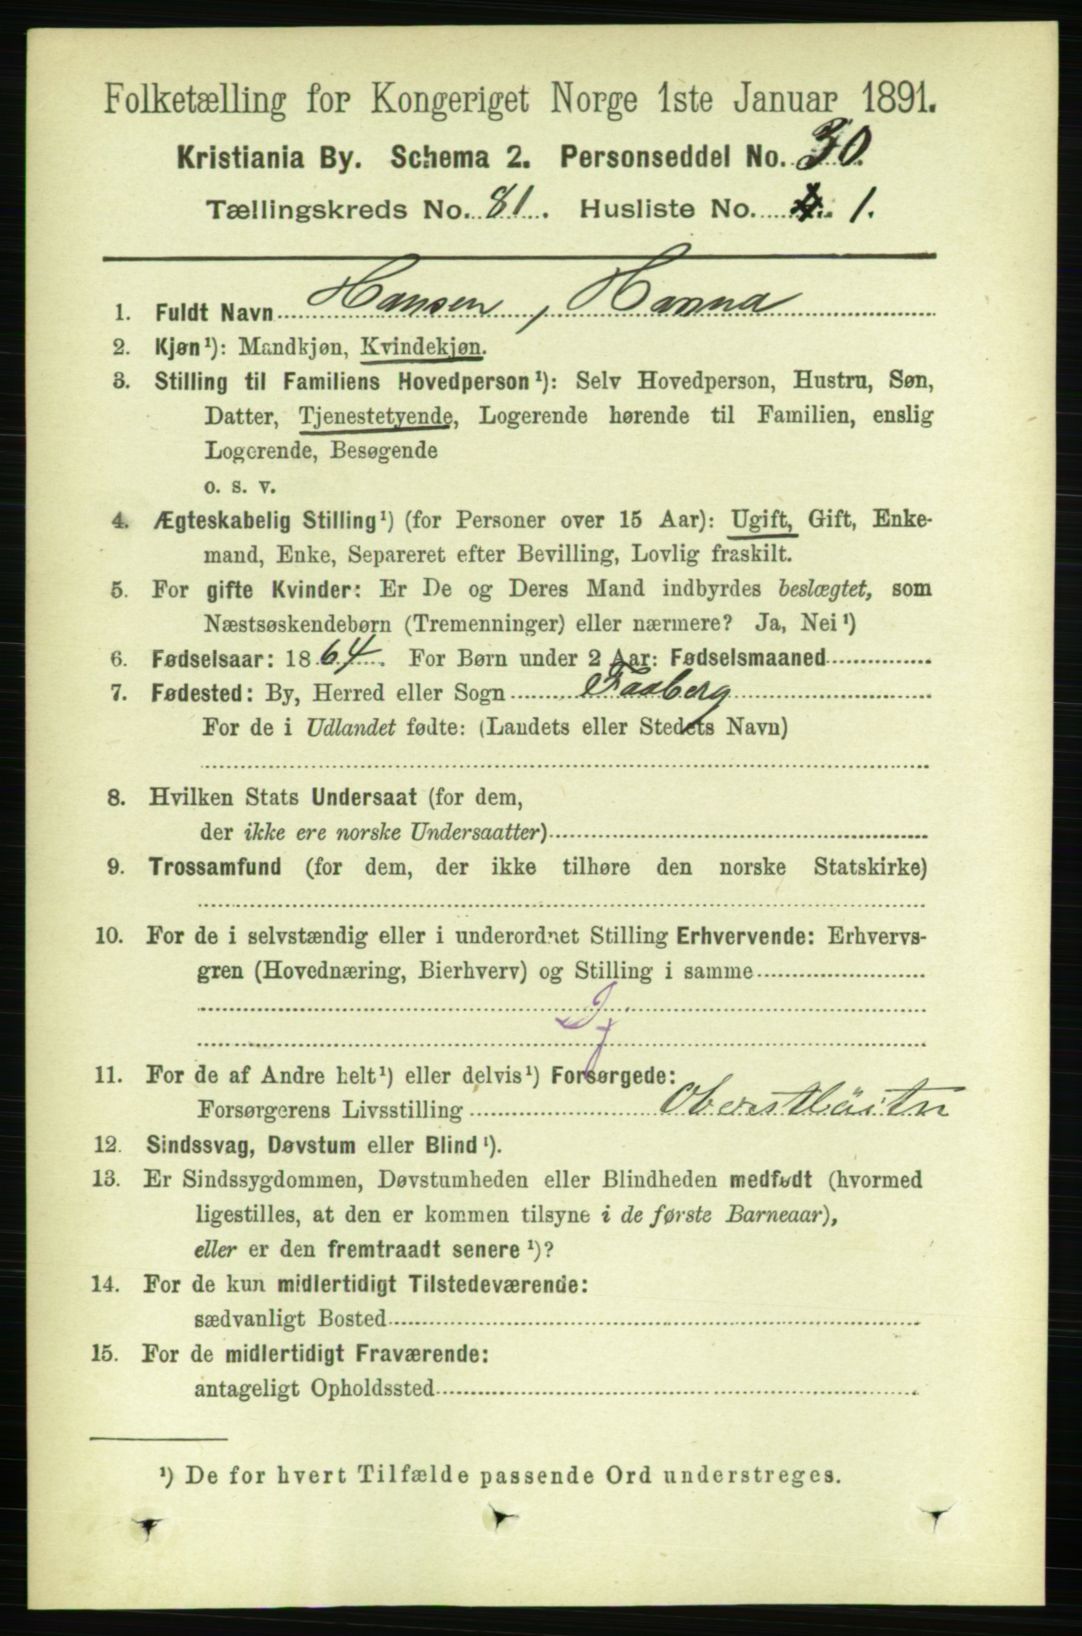 Folketælling for Kongeriget Norge 1ste Januar 1891.
Kristiania By. Schema 2. Personseddel No. 30.
Tællingskreds No. 81. Husliste No. 1.
1. Fuldt Navn Hansen, Hanna
2. Kjøn¹): Mandkjøn, Kvindekjøn.
3. Stilling til Familiens Hovedperson¹): Selv Hovedperson, Hustru, Søn,
Datter, Tjenestetyende, Logerende hørende til Familien, enslig
Logerende, Besøgende
o. s. v.
4. Ægteskabelig Stilling¹) (for Personer over 15 Aar): Ugift, Gift, Enke-
mand, Enke, Separeret efter Bevilling, Lovlig fraskilt.
5. For gifte Kvinder: Er De og Deres Mand indbyrdes beslægtet, som
Næstsøskendebørn (Tremenninger) eller nærmere? Ja, Nei¹)
6. Fødselsaar: 1864. For Børn under 2 Aar: Fødselsmaaned
7. Fødested: By, Herred eller Sogn Faaberg
For de i Udlandet fødte: (Landets eller Stedets Navn)
8. Hvilken Stats Undersaat (for dem,
der ikke ere norske Undersaatter)
9. Trossamfund (for dem, der ikke tilhøre den norske Statskirke)
10. For de i selvstændig eller i underordnet Stilling Erhvervende: Erhvervs-
gren (Hovednæring, Bierhverv) og Stilling i samme
11. For de af Andre helt¹) eller delvis¹) Forsørgede:
Forsørgerens Livsstilling
12. Sindssvag, Døvstum eller Blind¹).
13. Er Sindssygdommen, Døvstumheden eller Blindheden medfødt (hvormed
ligestilles, at den er kommen tilsyne i de første Barneaar),
eller er den fremtraadt senere¹)?
14. For de kun midlertidigt Tilstedeværende:
sædvanligt Bosted
15. For de midlertidigt Fraværende:
antageligt Opholdssted
¹) De for hvert Tilfælde passende Ord understreges.